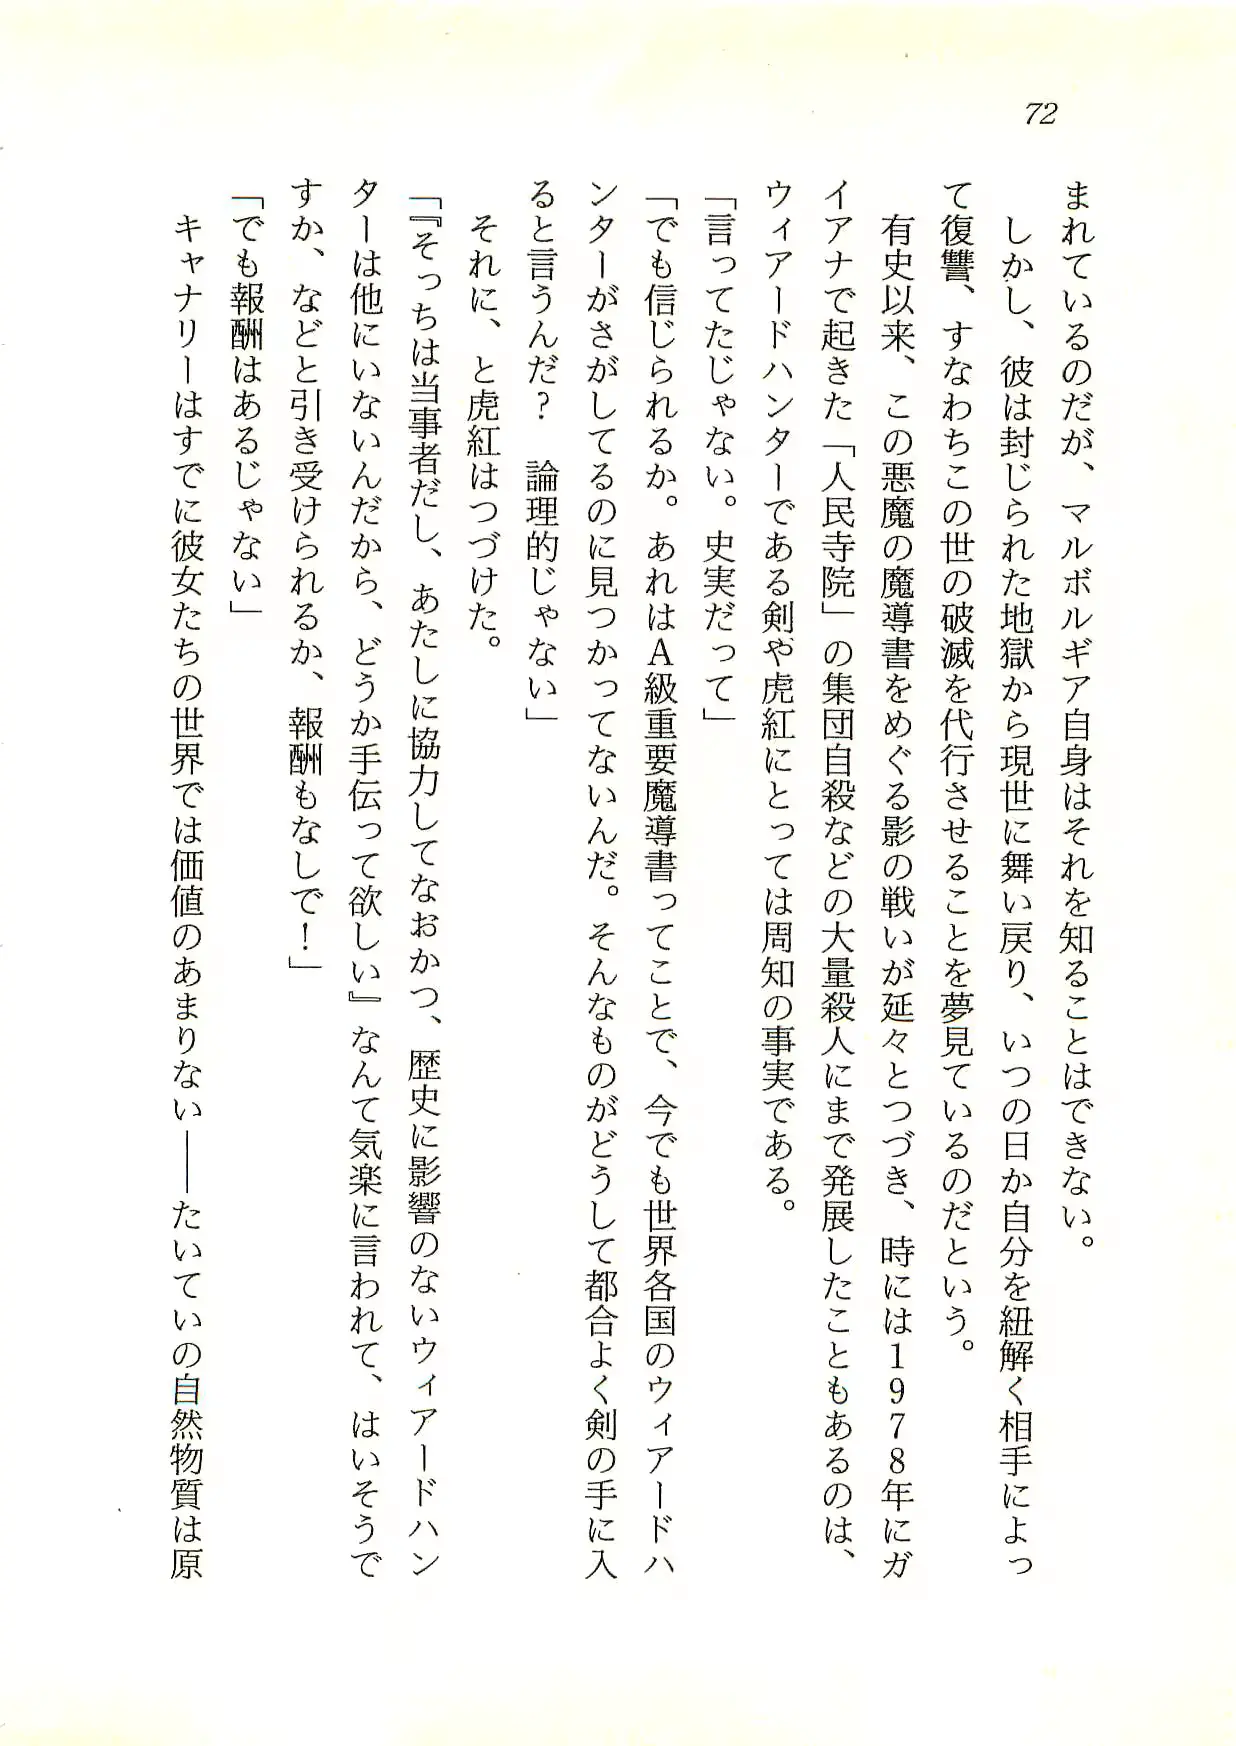 72
まれているのだが、マルボルギア自身はそれを知ることはできない。
　しかし、彼は封じられた地獄から現世に舞い戻り、いつの日か自分を紐解く相手によっ
て復讐、すなわちこの世の破滅を代行させることを夢見ているのだという。
　有史以来、この悪魔の魔導書をめぐる影の戦いが延々とつづき、時には1978年にガ
イアナで起きた「人民寺院」の集団自殺などの大量殺人にまで発展したこともあるのは、
ウィアードハンターである剣や虎紅にとっては周知の事実である。
「言ってたじゃない。史実だって」
「でも信じられるか。あれはA級重要魔導書ってことで、今でも世界各国のウィアードハ
ンターがさがしてるのに見つかってないんだ。そんなものがどうして都合よく剣の手に入
ると言うんだ？　論理的じゃない」
　それに、と虎紅はつづけた。
「『そっちは当事者だし、あたしに協力してなおかつ、歴史に影響のないウィアードハン
ターは他にいないんだから、どうか手伝って欲しい』なんて気楽に言われて、はいそうで
すか、などと引き受けられるか、報酬もなしで！」
「でも報酬はあるじゃない」
　キャナリーはすでに彼女たちの世界では価値のあまりない――たいていの自然物質は原